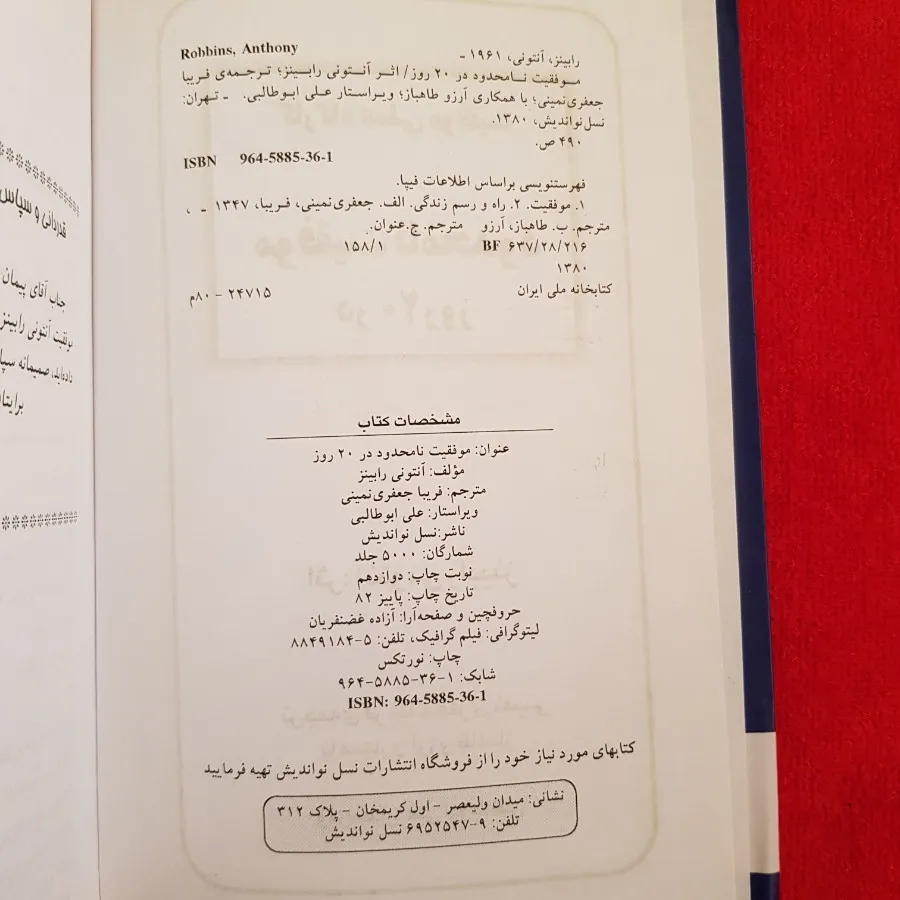 Robbins, Anthony
رابینز، آنتونی، ۱۹۶۱ -
موفقیت نامحدود در ۲۰ روز/ اثر آنتونی رابینز؛ ترجمه‌ی فریبا
جعفری‌نمینی؛ با همکاری آرزو طاهباز؛ ویراستار علی ابوطالبی. - تهران:
نسل نواندیش، ۱۳۸۰.
۴۹۰ ص.
ISBN 964-5885-36-1
فهرستنویسی براساس اطلاعات فیپا.
۱. موفقیت. ۲. راه و رسم زندگی. الف. جعفری‌نمینی، فریبا، ۱۳۴۷ - ،
مترجم. ب. طاهباز، آرزو مترجم. ج.عنوان.
BF ۶۳۷/۲۸/۲۱۶ ۱۵۸/۱
۱۳۸۰
کتابخانه ملی ایران ۲۴۷۱۵ - ۸۰م
مشخصات کتاب
عنوان: موفقیت نامحدود در ۲۰ روز
مؤلف: آنتونی رابینز
مترجم: فریبا جعفری‌نمینی
ویراستار: علی ابوطالبی
ناشر:نسل نواندیش
شمارگان: ۵۰۰۰ جلد
نوبت چاپ: دوازدهم
تاریخ چاپ: پاییز ۸۲
حروفچین و صفحه‌آرا: آزاده غضنفریان
لیتوگرافی: فیلم گرافیک، تلفن: ۵-۸۸۴۹۱۸۴
چاپ: نورتکس
شابک: ۱-۳۶-۵۸۸۵-۹۶۴
ISBN: 964-5885-36-1
کتابهای مورد نیاز خود را از فروشگاه انتشارات نسل نواندیش تهیه فرمایید
نشانی: میدان ولیعصر - اول کریمخان - پلاک ۳۱۲
تلفن: ۹-۶۹۵۲۵۴۷ نسل نواندیش
قدردانی و سپاس
جناب آقای پیمان
موفقیت آنتونی رابینز
داده‌اید، صمیمانه